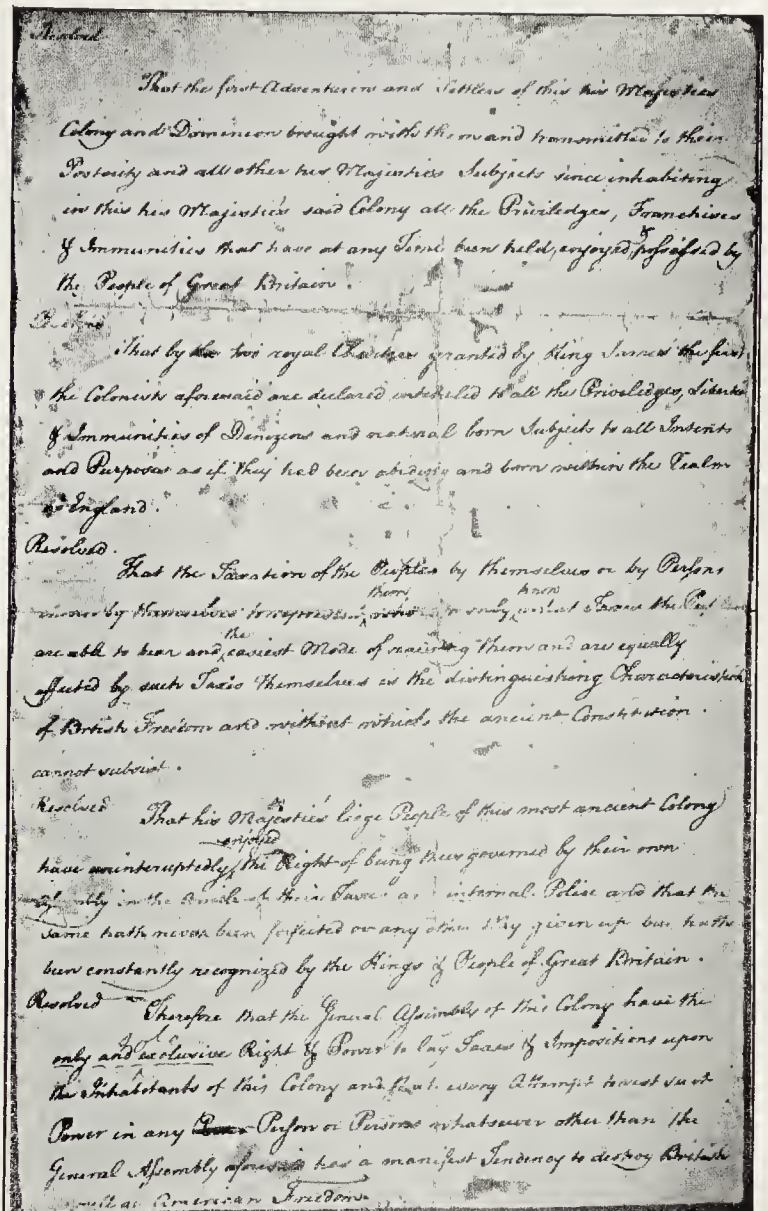 Resolved
That the first Adventurers and Settlers of this his Majesties
Colony and Dominion brought with them and transmitted to their
Posterity and all other his Majesties Subjects since inhabiting
in this his Majestie's said Colony all the Priviledges, Franchises
& Immunities that have at any Time been held, enjoyed, & possessed by
the People of Great Britain.
Resolved
That by the two royal Charters granted by King James the first
the Colonists aforesaid are declared intitled to all the Priviledges, Liberties
& Immunities of Denizens and natural born Subjects to all Intents
and Purposes as if they had been abiding and born within the Realm
of England.
Resolved.
That the Taxation of the People by themselves or by Persons
chosen by themselves to represent them who can only know what Taxes the People
are able to bear and the easiest Mode of raising them and are equally
affected by such Taxes themselves is the distinguishing Characteristick
of British Freedom and without which the ancient Constitution
cannot subsist.
Resolved
That his Majestie's liege People of this most ancient Colony
have uninteruptedly enjoyed the Right of being thus governed by their own
in the Article of their Taxes and internal Police and that the
same hath never been forfeited or any other Way given up but hath
been constantly recognized by the Kings & People of Great Britain.
Resolved
Therefore that the General Assembly of this Colony have the
only and exclusive Right & Power to lay Taxes & Impositions upon
the Inhabitants of this Colony and that every Attempt to vest such
Power in any Person or Persons whatsoever other than the
General Assembly aforesaid has a manifest Tendency to destroy British
as well as American Freedom.